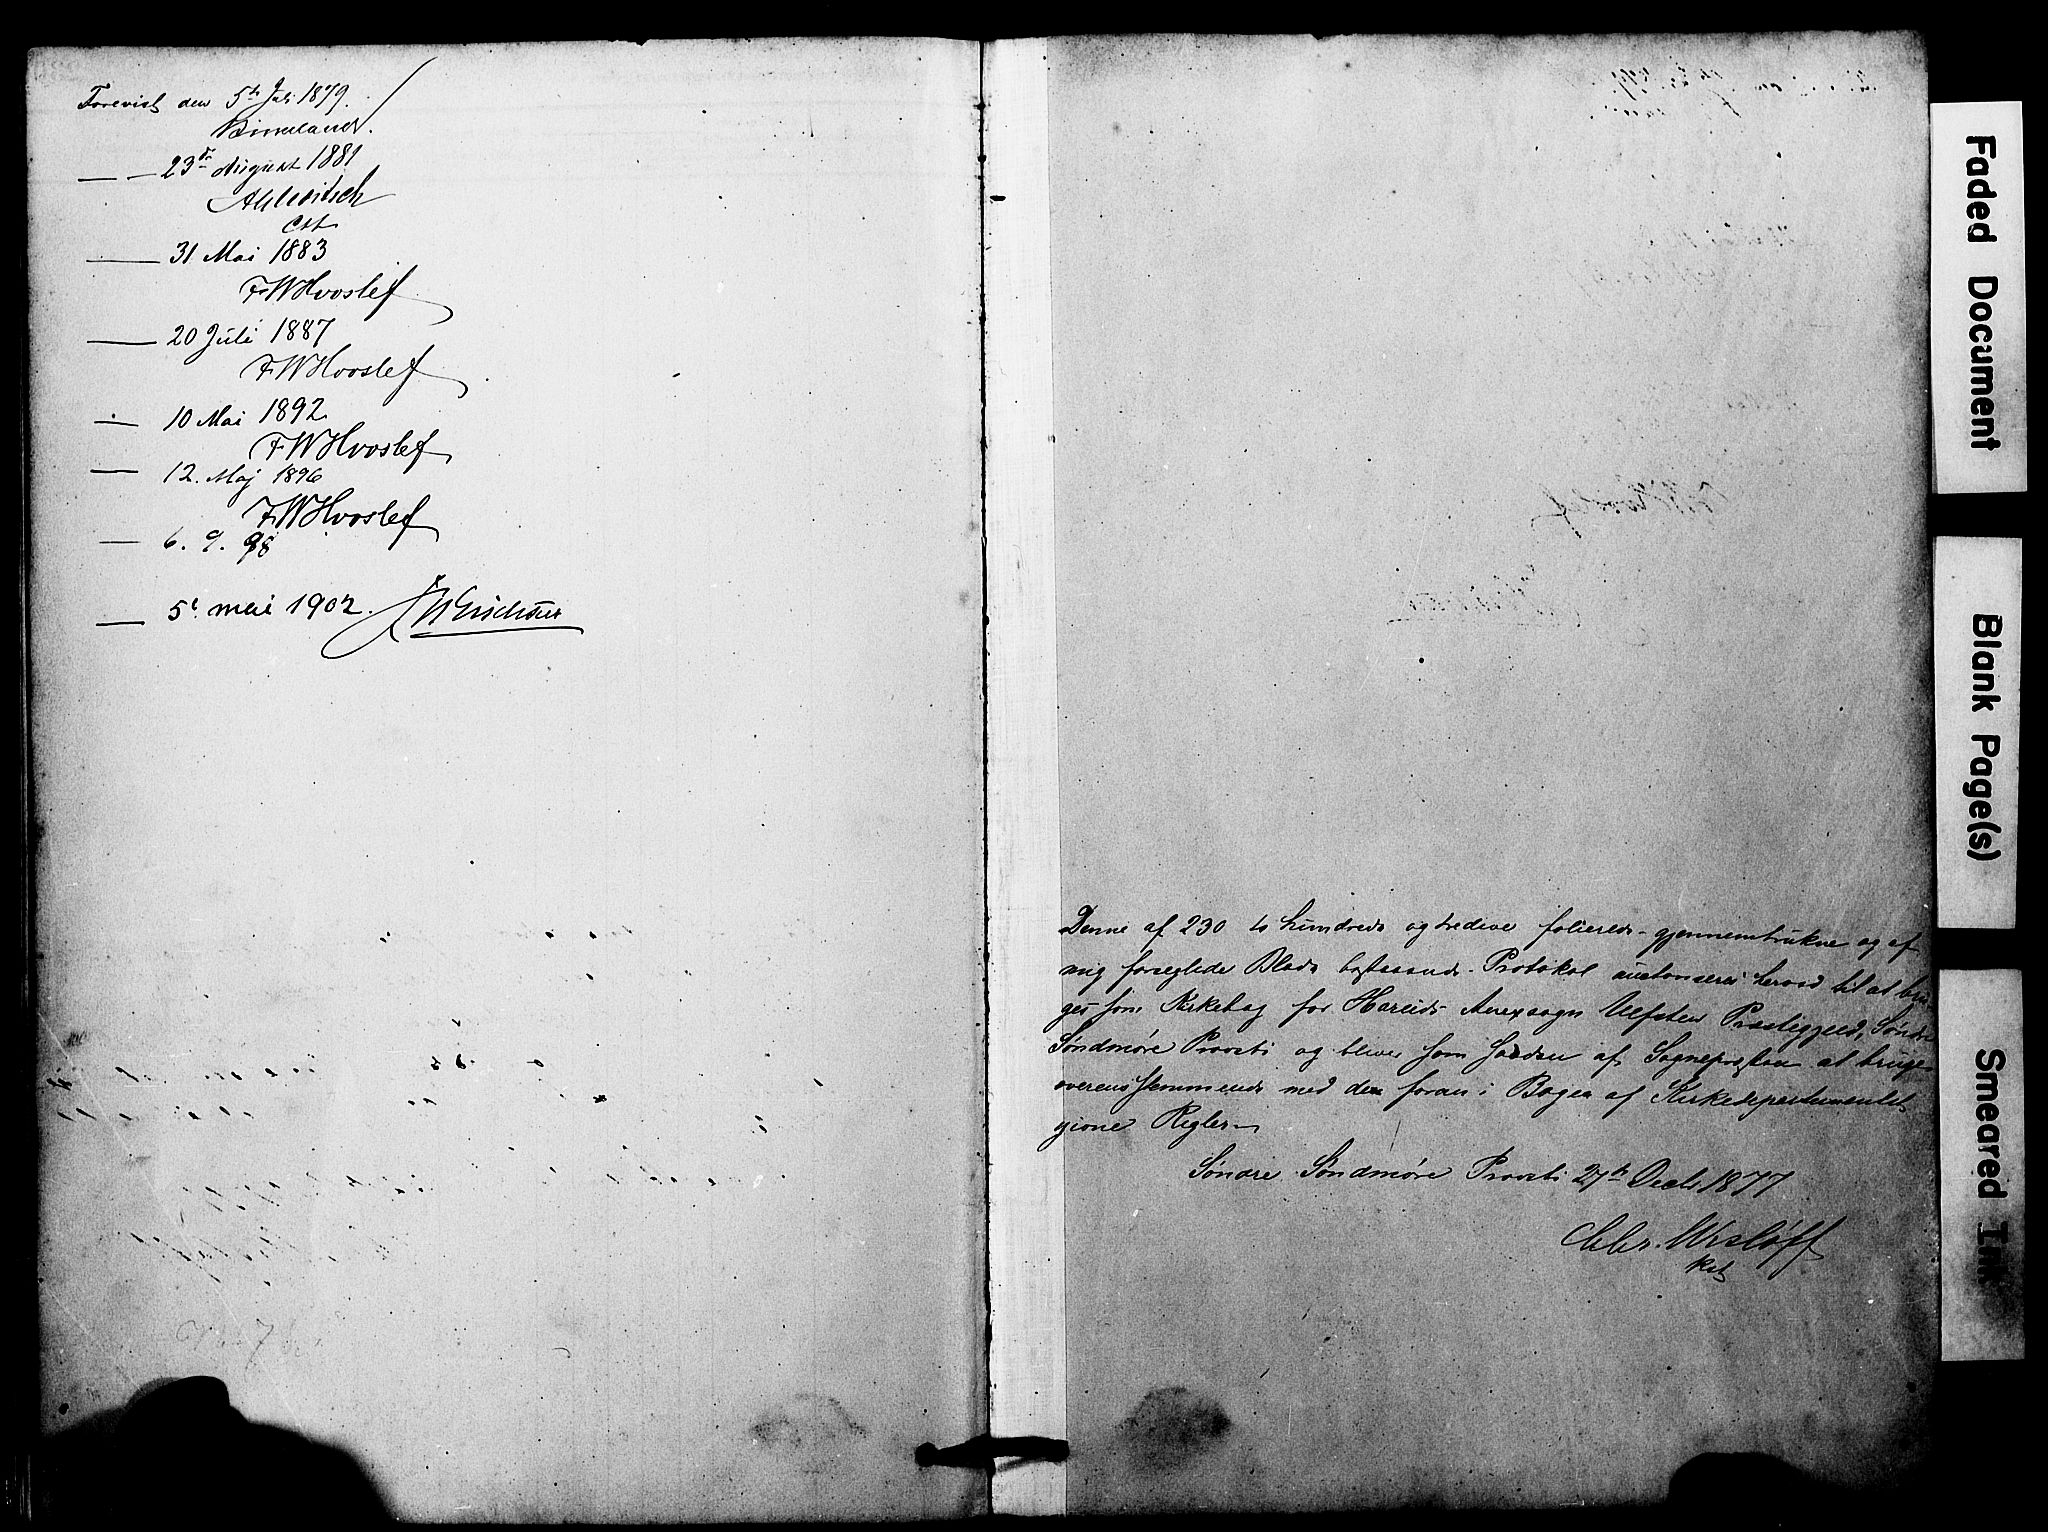 Forevist den 5te Juli 1879.
Birkeland.
— — 23de August 1881
Cst
— 31 Mai 1883
FWHvoslef
— 20 Juli 1887
FWHvoslef
— 10 Mai 1892
FWHvoslef
— 12. Maj 1896
FWHvoslef
— 6. 9. 98
— 5t mai 1902. JWErichsen
Denne af 230 to hundrede og tredive folierede gjennemtrukne og af
mig forseglede Blade bestaaende Protokol autoriseres herved til at bru-
ges som Kirkebog for Hareids Annexsogn Ulfsten Præstegjeld, Søndre
Søndmøre Provsti og bliver som saadan af Sognepræsten at bruge
overensstemmende med de foran i Bogen af Kirkedepartementet
givne Regler.
Søndre Søndmøre Provsti 27de Decbr 1877
Chr. Wisløff
Kst
Faded Document
Blank Page(s)
Smeared Ink